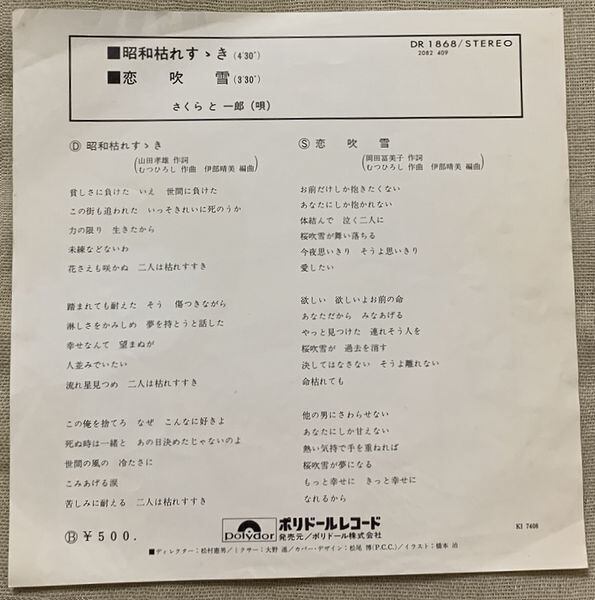 DR 1868/STEREO
2082 409
■昭和枯れすゝき(4'30")
■恋吹雪(3'30")
さくらと一郎(唄)
Ⓓ 昭和枯れすゝき
(山田孝雄 作詞
むつひろし 作曲 伊部晴美 編曲)
貧しさに負けた いえ 世間に負けた
この街も追われた いっそきれいに死のうか
力の限り 生きたから
未練などないわ
花さえも咲かぬ 二人は枯れすすき
踏まれても耐えた そう 傷つきながら
淋しさをかみしめ 夢を持とうと話した
幸せなんて 望まぬが
人並みでいたい
流れ星見つめ 二人は枯れすすき
この俺を捨てろ なぜ こんなに好きよ
死ぬ時は一緒と あの日決めたじゃないのよ
世間の風の 冷たさに
こみあげる涙
苦しみに耐える 二人は枯れすすき
Ⓢ 恋吹雪
(岡田冨美子 作詞
むつひろし 作曲 伊部晴美 編曲)
お前だけしか抱きたくない
あなたにしか抱かれない
体結んで 泣く二人に
桜吹雪が舞い落ちる
今夜思いきり そうよ思いきり
愛したい
欲しい 欲しいよお前の命
あなただから みなあげる
やっと見つけた 連れそう人を
桜吹雪が 過去を消す
決してはなさない そうよ離れない
命枯れても
他の男にさわらせない
あなたにしか甘えない
熱い気持で手を重ねれば
桜吹雪が夢になる
もっと幸せに きっと幸せに
なれるから
Ⓑ ¥500.
Polydor
ポリドールレコード
発売元/ポリドール株式会社
KI 7408
■ディレクター:松村憲男/ミクサー:大野 進/カバー・デザイン:松尾 博(P.C.C.)/イラスト:橋本 治